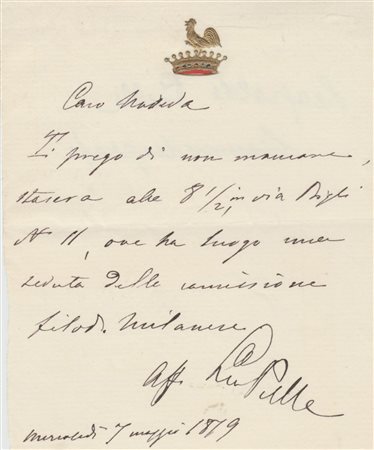 Caro
Ti prego di non mancare,
stasera alle 8 1/2, in via Bigli
N 11, ove ha luogo una
seduta della commissione
filod. milanese
Aff. 
mercoledì 7 maggio 1879